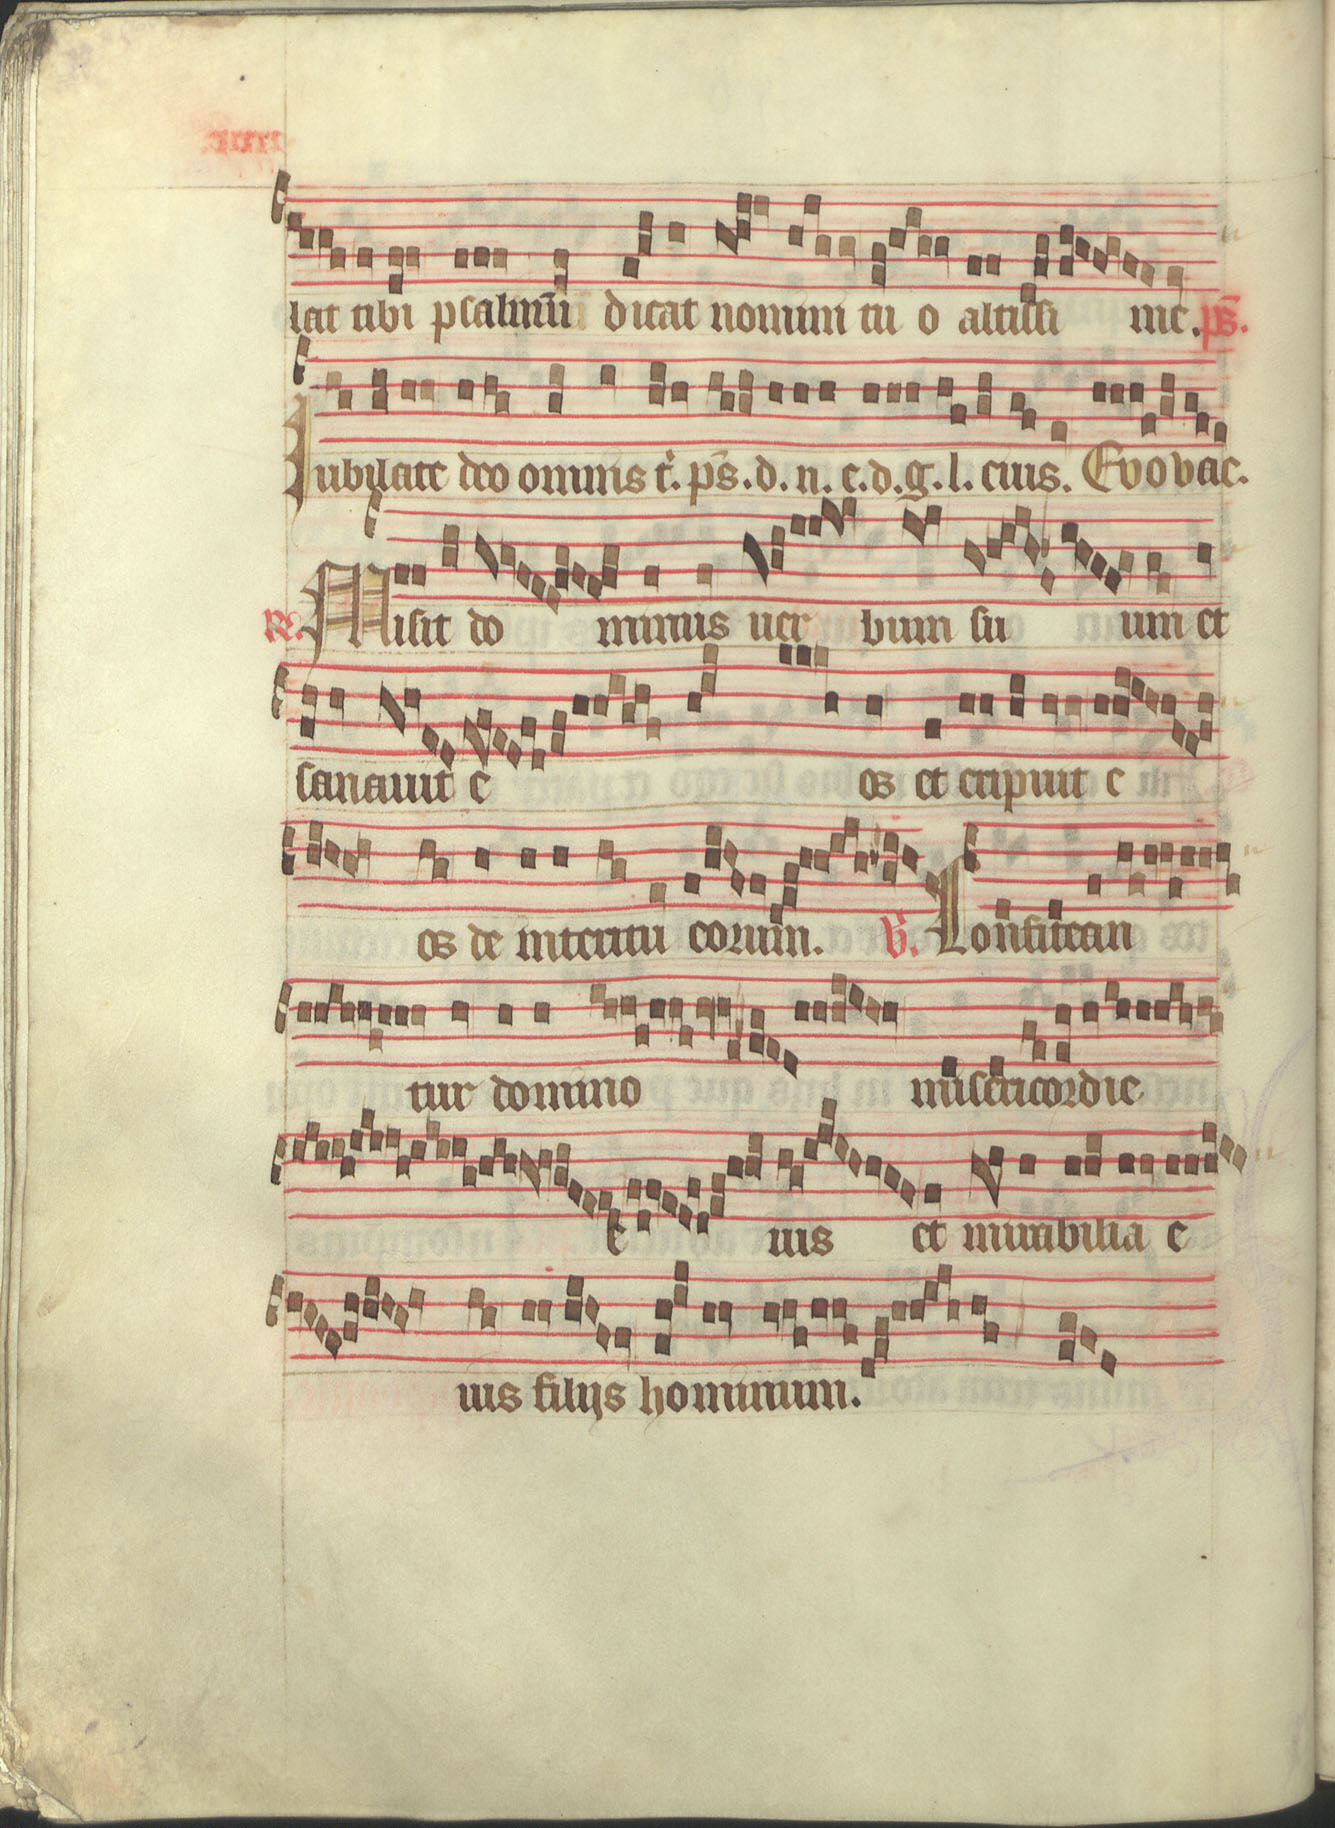 lat tibi psalmū dicat nomini tu o altissi me. ps̄.
Iubilate deo omnis t̄. ps̄. d. n. e. d. g. l. eius. Evovae.
R. Misit do minus uer bum su um et
sanauit e os et eripuit e
os de interitu eorum. V. Confitean
tur domino misericordie
e ius et mirabilia e
ius filijs hominum.